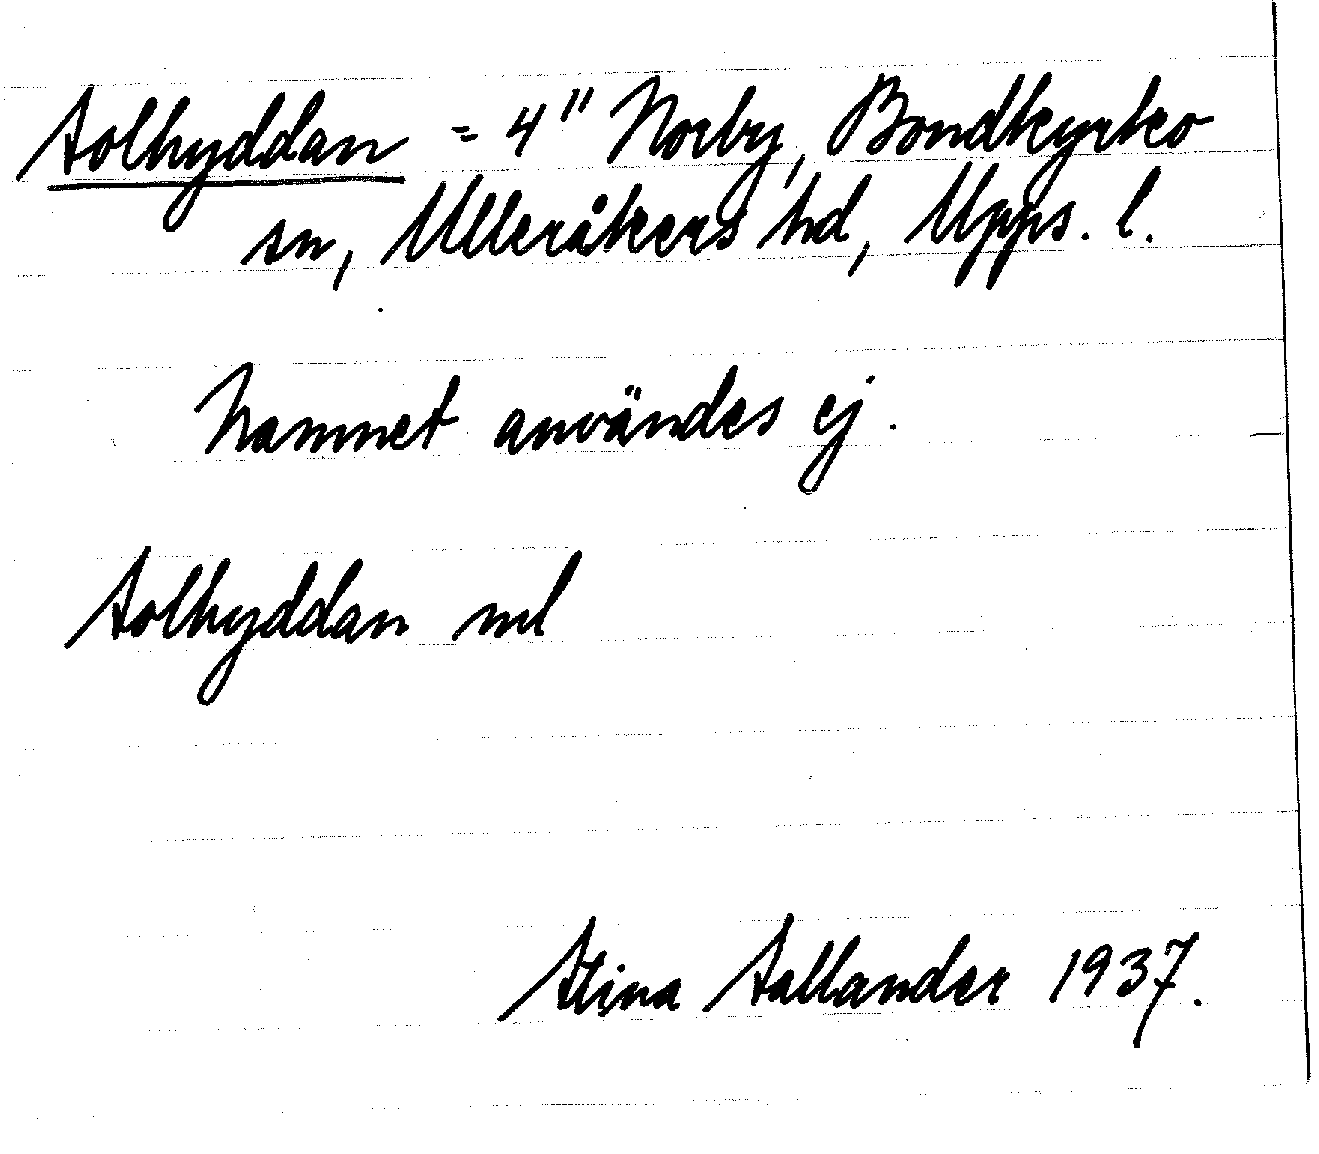 Solhyddan = 4" Norby, Bondkyrko
sn, Ulleråkers hd, Upps. l.
Namnet användes ej.
Solhyddan
Stina Sallander 1937.